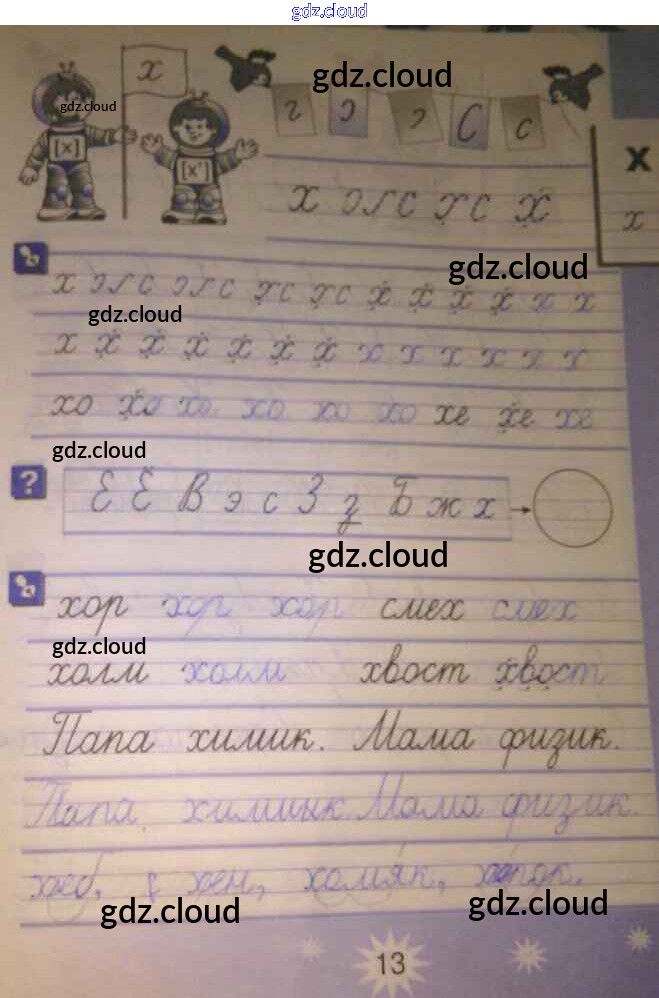 gdz.cloud
х
gdz.cloud
gdz.cloud
[х] [х']
г С с
х
х с с х
х
gdz.cloud
х с с с с х х х х х х
gdz.cloud
х х х х х х х х х х х х х
хо хо хо хо хо хо хе хе хе
gdz.cloud
? Е Ё В э с З з Б ж х
gdz.cloud
хор хор хор смех смех
gdz.cloud
холм холм хвост хвост
Папа химик. Мама физик.
Папа химик Мама физик.
хомяк,
gdz.cloud gdz.cloud
13